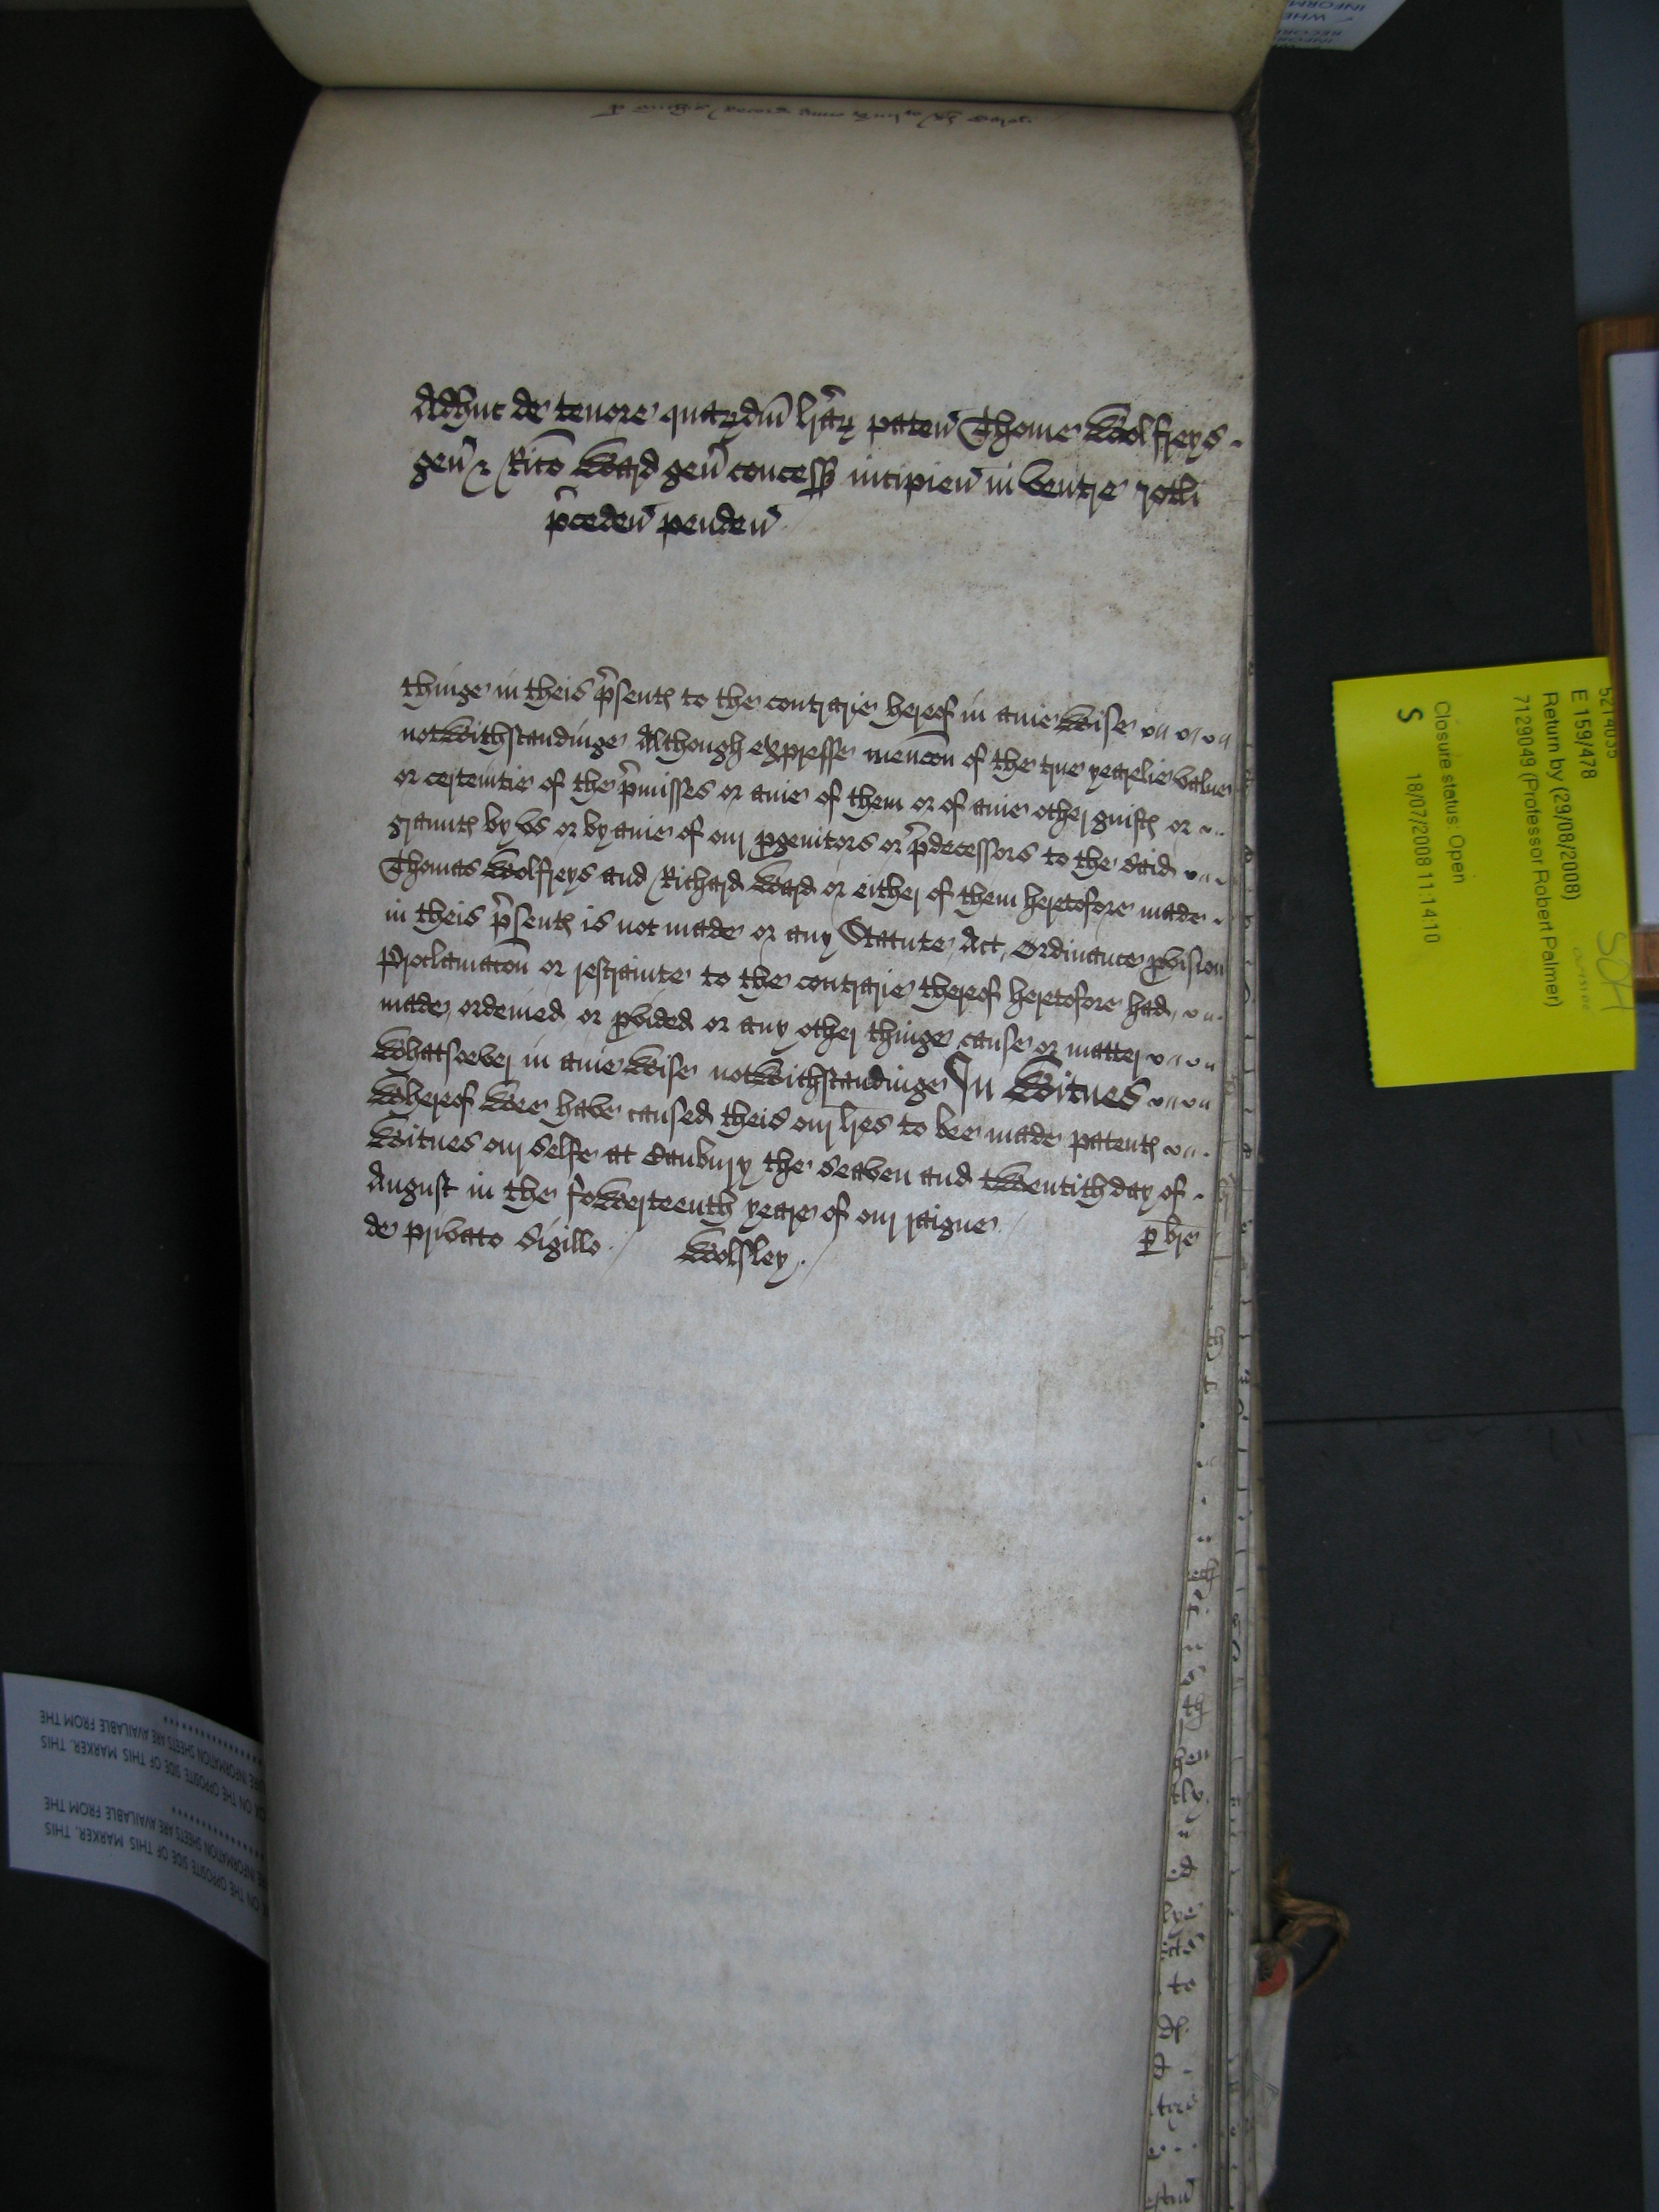 Adhuc de tenore quardm̄ lr̄ar paten̄ Thome Wolfreys
gen̄ & Ric̄o Ward gen̄ concess incipien̄ in ventre rotli
p̄ceden̄ penden̄
thinge in theis p̄sents to the contrarie hereof in anie wise
notwithstandinge Although expresse menc̄on of the true yearelie value
or certeintie of the p̄misses or anie of them or of anie other guifts or
graunts by vs or by anie of our pgenitors or p̄decessors to the said
Thomas Wolfreys and Richard Ward or either of them heretofore made
in theis p̄sents is not made or any Statute, Act, Ordinance pvision
Proclamac̄on or restrainte to the contrarie thereof heretofore had,
made, ordeined, or pvided or any other thinge cause or matter
whatsoever in anie wise notwithstandinge In Witnes
whereof wee have caused theis our lr̄es to bee made patents
Witnes our selfe at Banbury the seaven and twentith day of
August in the fowerteenth yeare of our raigne
p bre
de privato Sigillo. / Wolsley. /
5214035
E 159/478
Return by (29/08/2008)
7129049 (Professor Robert Palmer)
Closure status: Open
18/07/2008 11:14:10
S
SOH
ON THE OPPOSITE SIDE OF THIS MARKER. THIS
INFORMATION SHEETS ARE AVAILABLE FROM THE
ON THE OPPOSITE SIDE OF THIS MARKER. THIS
INFORMATION SHEETS ARE AVAILABLE FROM THE